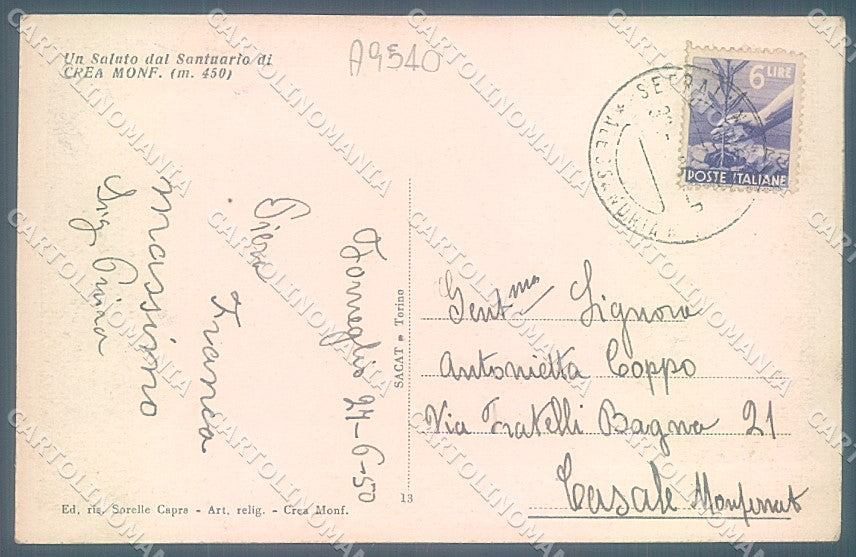 Un Saluto dal Santuario di
CREA MONF. (m. 450)
A9540
6 LIRE
POSTE ITALIANE
Massimo
Franca
Piera
24-6-50
SACAT - Torino
Gent.ma Signora
Antonietta Coppo
Via Fratelli Bagna 21
Casale Monferrato
Ed. ris. Sorelle Capra - Art. relig. - Crea Monf.
13
CARTOLINOMANIA